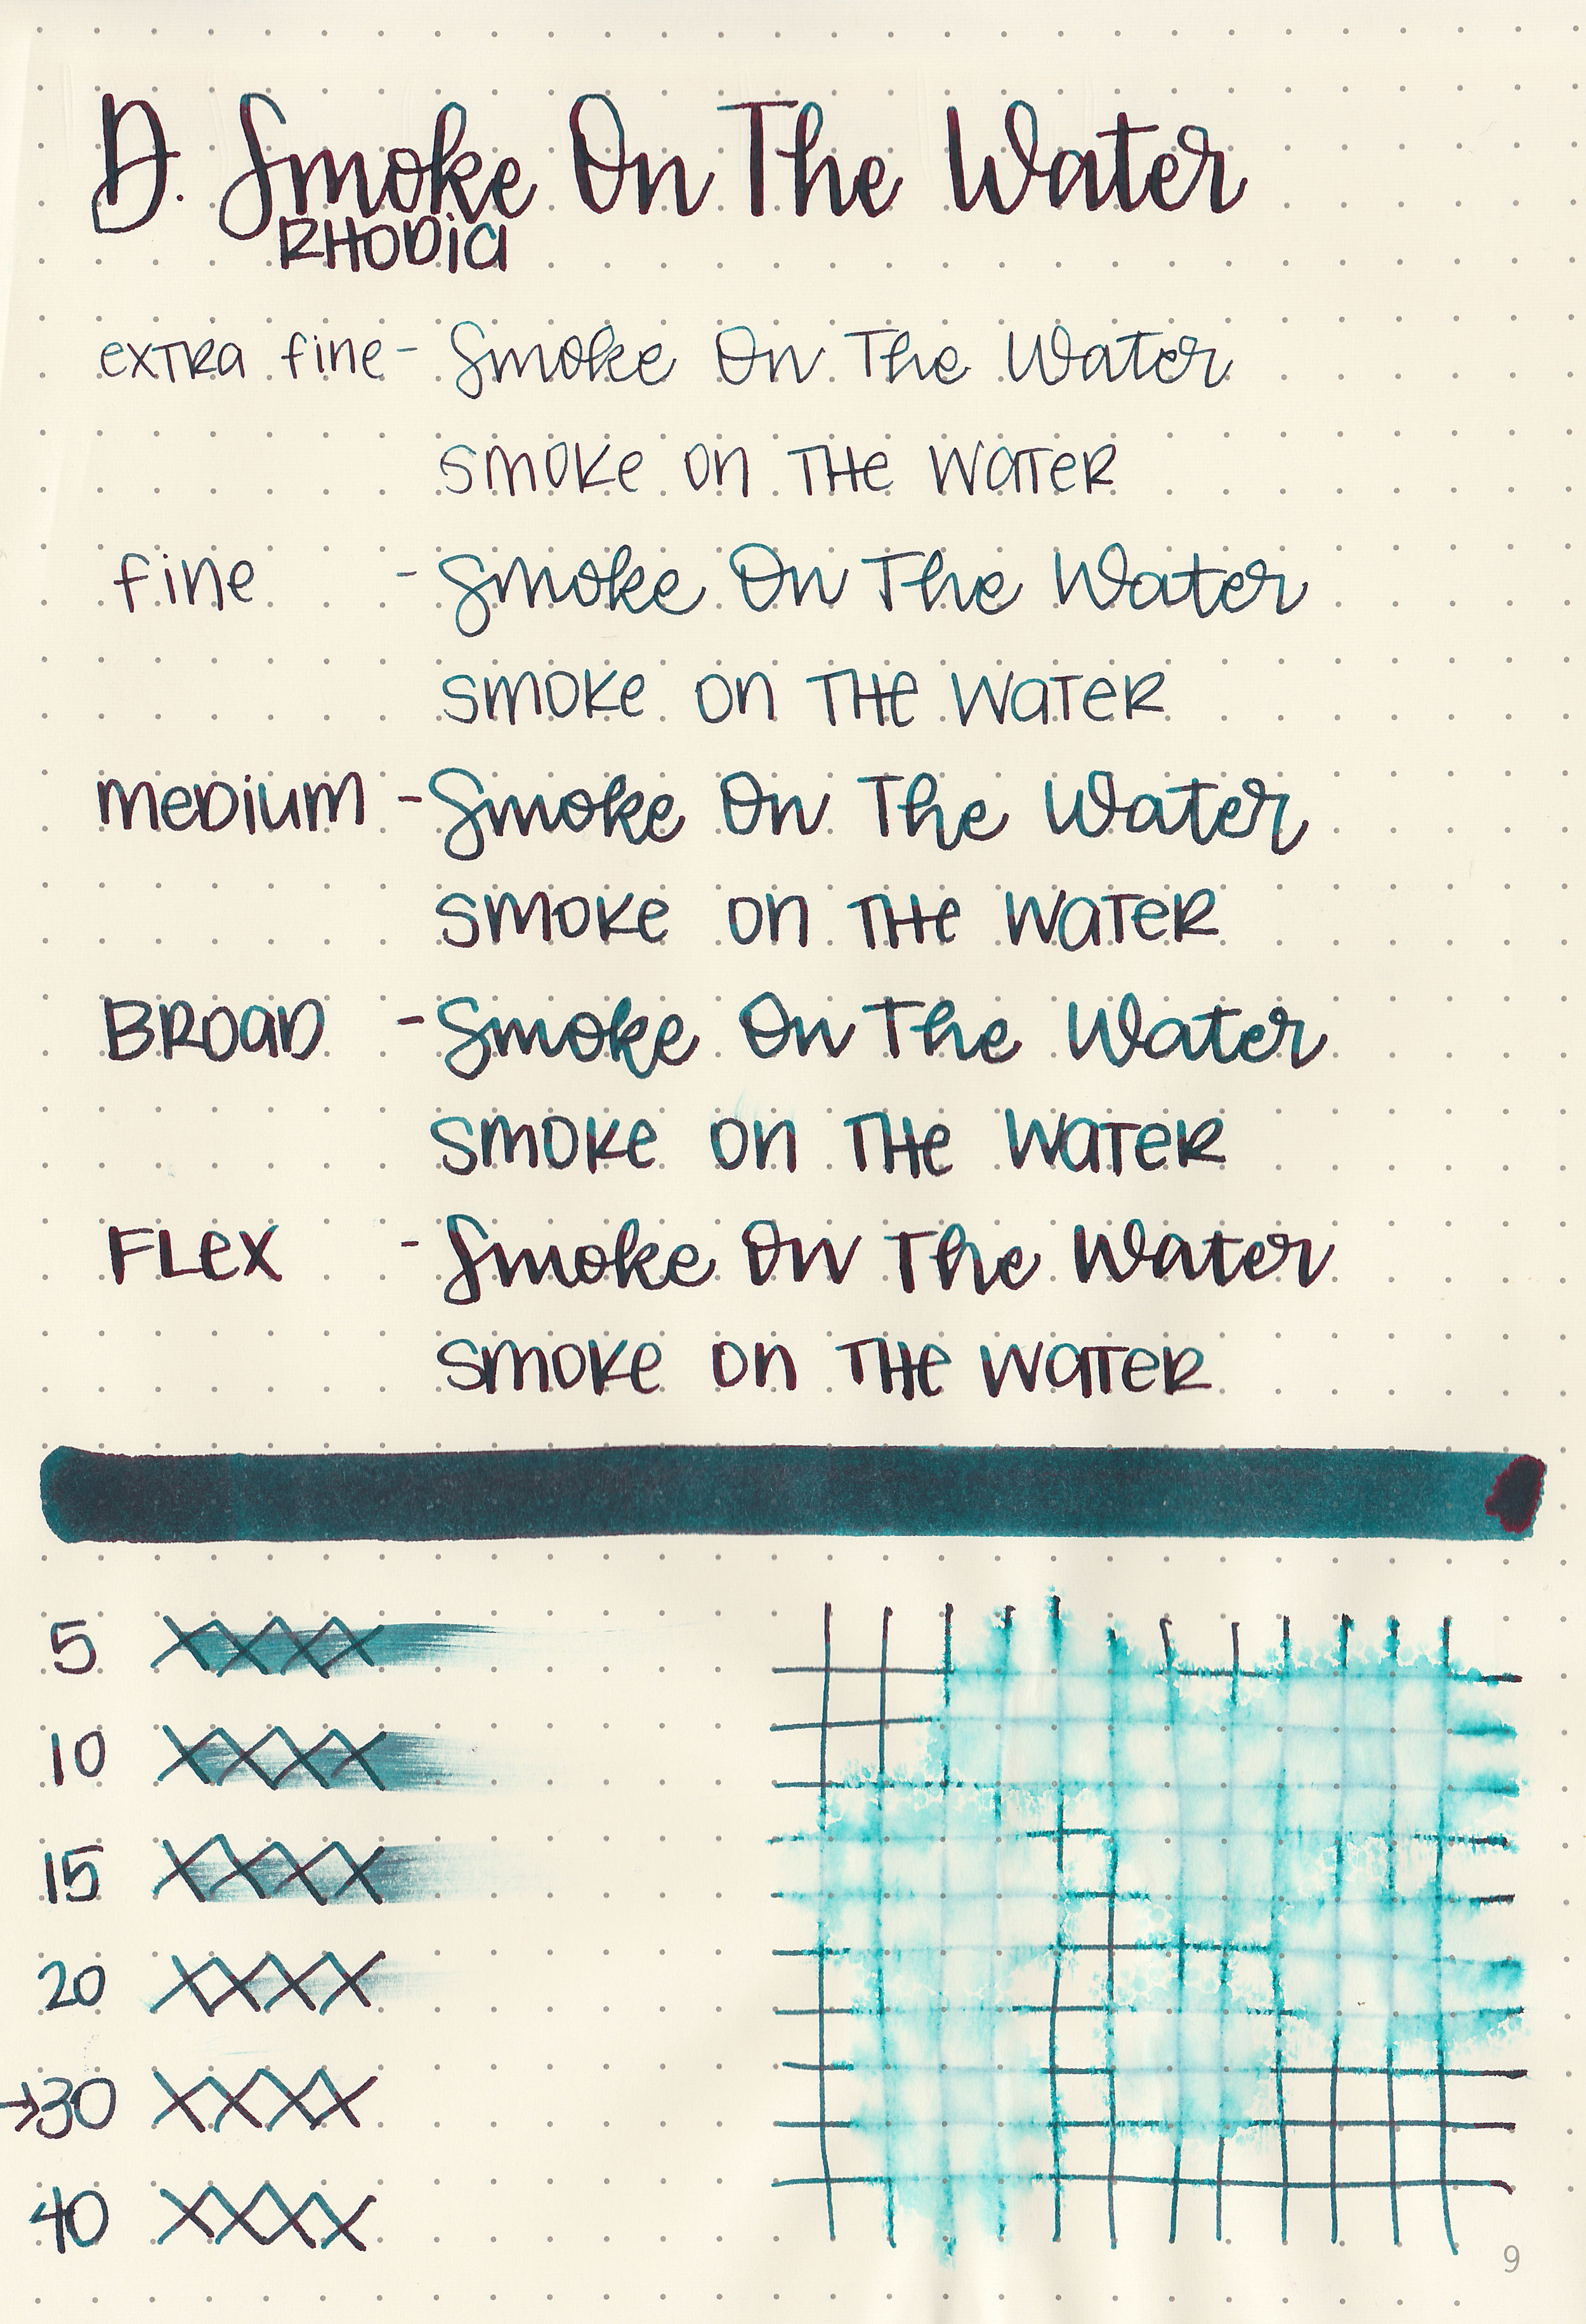 D. Smoke On The Water
RHODIa
extRa fine - Smoke On The Water
smoke on THe WaTeR
fine - Smoke On The Water
smoke on THe WaTeR
meDium - Smoke On The Water
smoke on THe WaTeR
BROaD - Smoke On The Water
smoke on THe WaTeR
FLex - Smoke On The Water
smoke on THe WaTeR
5 XXXX
10 XXXX
15 XXXX
20 XXXX
→30 XXXX
40 XXXX
9